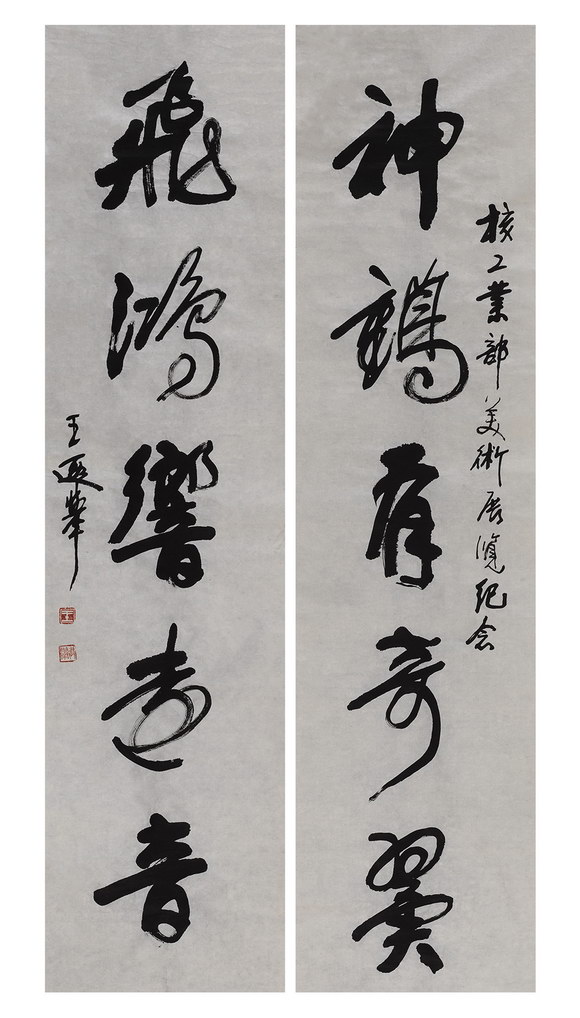 核工業部美術展覽紀念
神鶴有奇翼
飛鴻響遠音
王遐舉